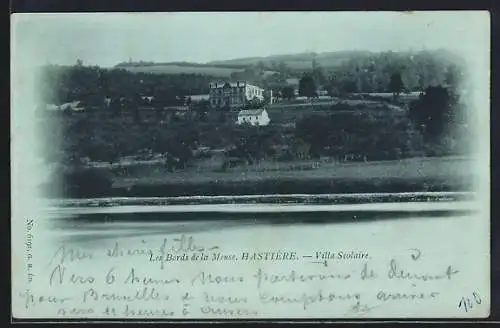 Les Bords de la Meuse. HASTIÈRE. — Villa Scolaire.
Mes chères filles
Vers 6 heures nous partirons de Dinant
pour Bruxelles & nous comptons arriver
vers 11 heures à Anvers
100